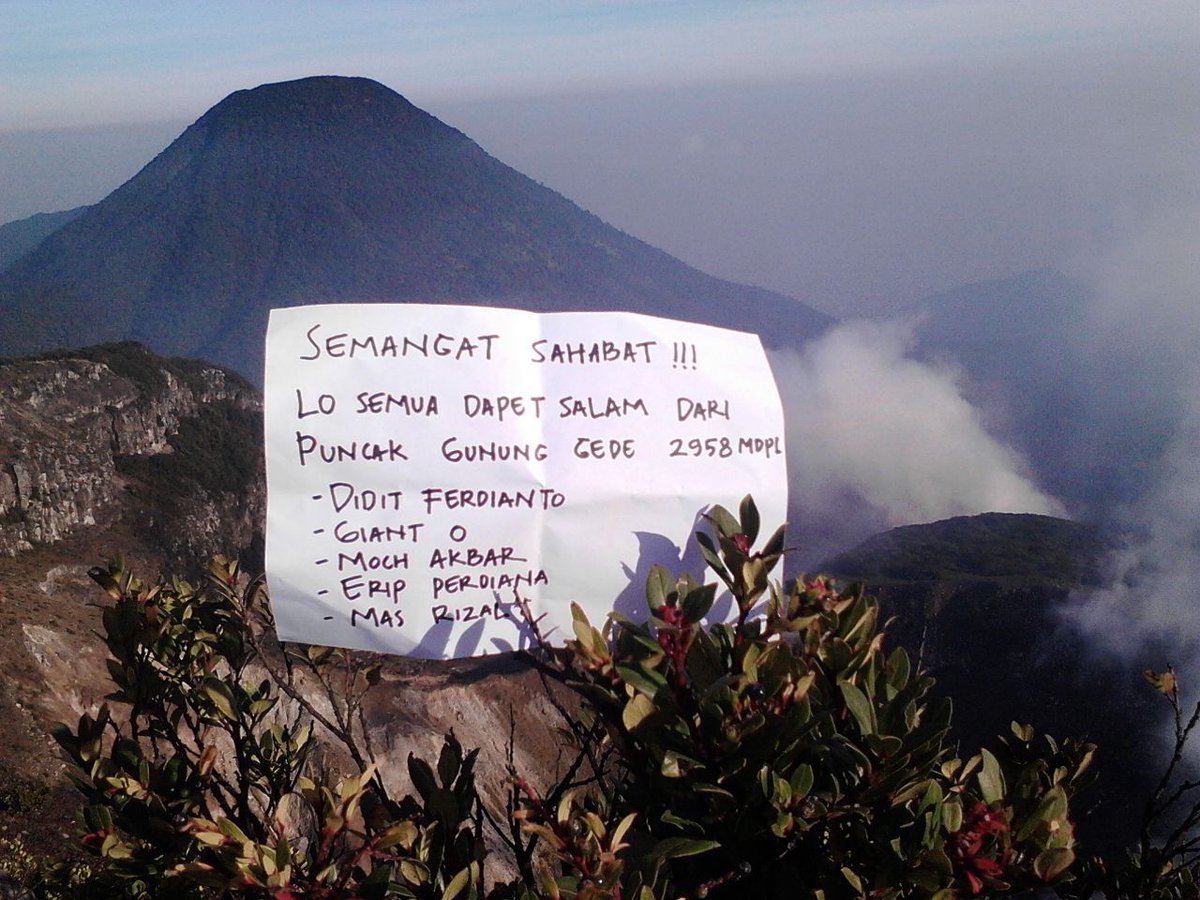 SEMANGAT SAHABAT !!!
LO SEMUA DAPET SALAM DARI
PUNCAK GUNUNG GEDE 2958 MDPL
- DIDIT FERDIANTO
- GIANT O
- MOCH AKBAR
- ERIP PERDIANA
- MAS RIZAL